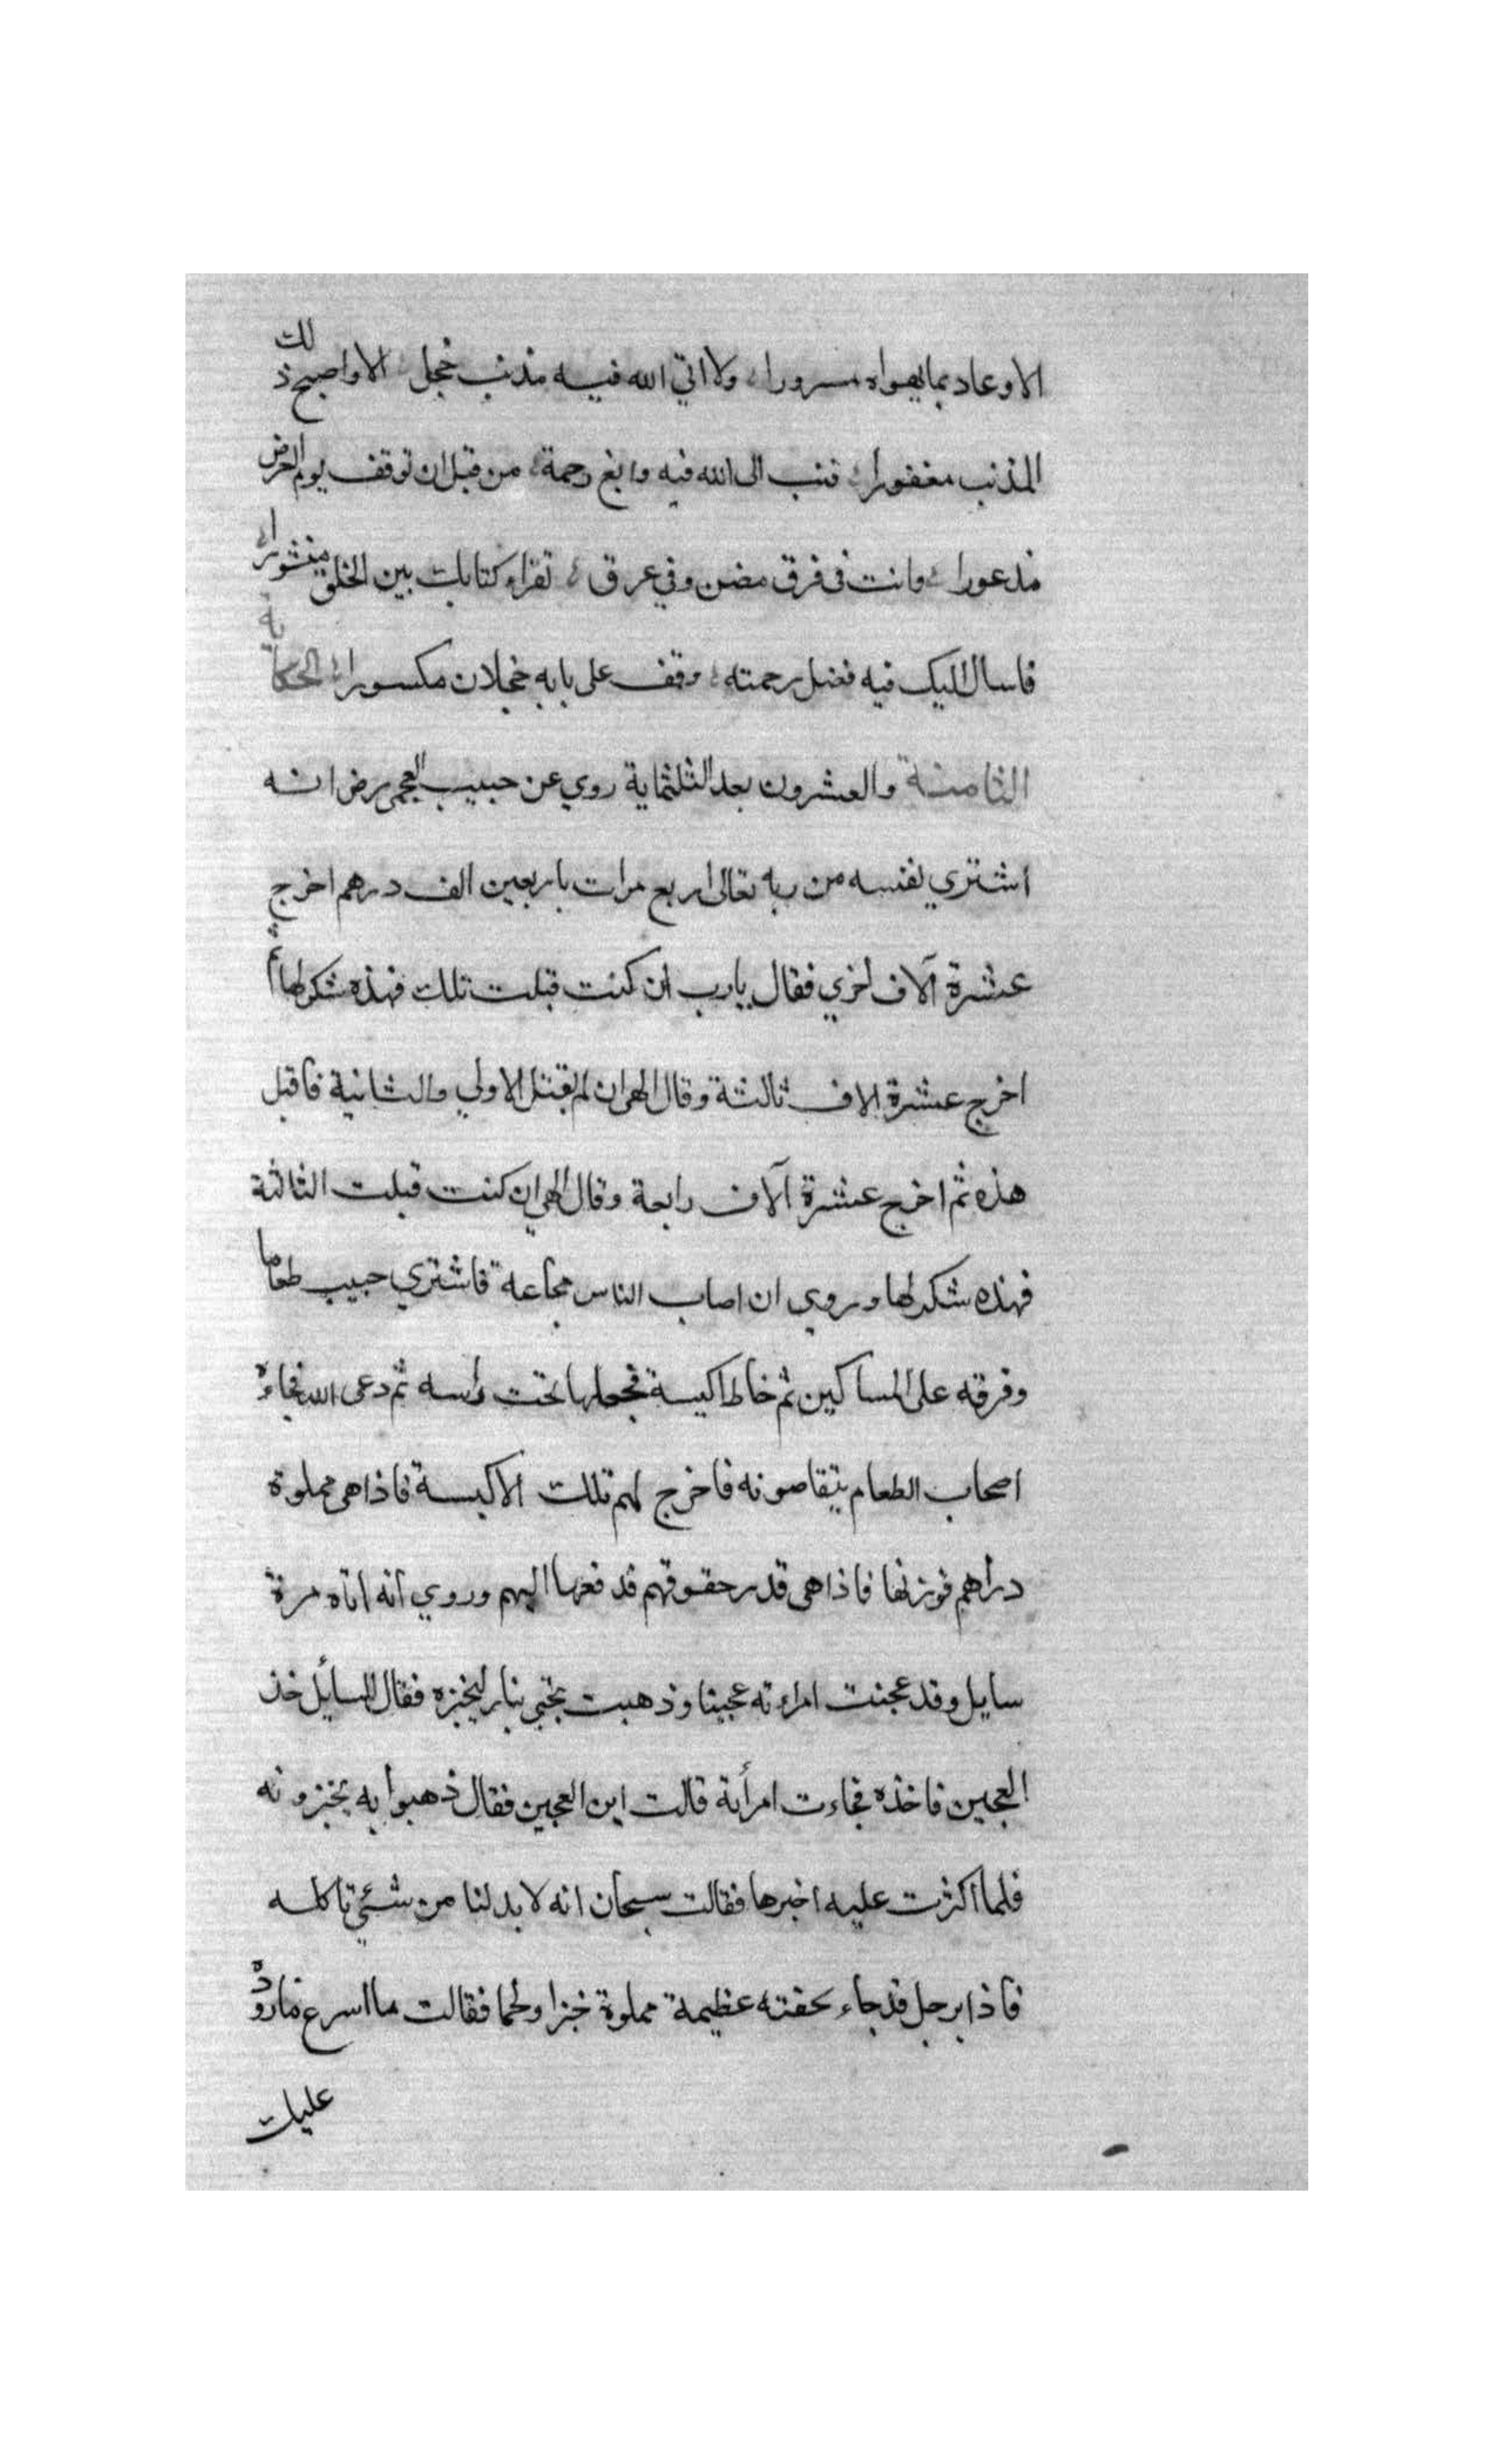 الا وعاد بما يهواه مسرورا ولا اتي الله فيه مذنب خجل الا واصبح ذلك
المذنب مغفورا فتب الى الله فيه وابغ رحمة من قبل ان توقف يوم العرض
مذعورا وانت في فرق مضن وفي عرق تقراء كتابك بين الخلق منشورا
فاسال المليك فيه فضل رحمته وقف على بابه خجلان مكسورا الحكاية
الثامنة والعشرون بعد الثلثماية روي عن حبيب العجمي رض انه
اشتري نفسه من ربه تعالى اربع مرات باربعين الف درهم اخرج
عشرة آلاف اخري فقال يارب ان كنت قبلت تلك فهذه شكر لها ثم
اخرج عشرة الاف ثالثة وقال الهي ان لم تقبل الاولي والثانية فاقبل
هذه ثم اخرج عشرة آلاف رابعة وقال الهي ان كنت قبلت الثالثة
فهذه شكر لها وروي ان اصاب الناس مجاعة فاشتري حبيب طعاما
وفرقه على المساكين ثم خاط اكيسة فجعلها تحت راسه ثم دعى الله فجاءه
اصحاب الطعام يتقاصونه فاخرج لهم تلك الاكيسة فاذا هي مملوة
دراهم فوزنها فاذا هي قدر حقوقهم فدفعها اليهم وروي انه اتاه مرة
سايل وقد عجنت امراءته عجينا وذهبت تجي بنار ليخبزه فقال للسائل خذ
العجين فاخذه فجاءت امرأته قالت اين العجين فقال ذهبوا به يخبزونه
فلما اكثرت عليه اخبرها فقالت سبحان الله لا بد لنا من شئي ناكله
فاذا برجل قد جاء بجفنته عظيمة مملوة خبزا ولحما فقالت ما اسرع ما ردوه
عليك